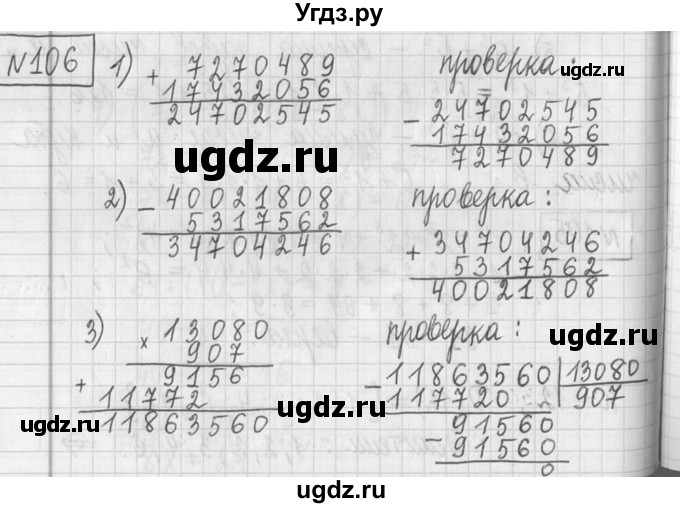 Угдз.ру
№106
1) + 7270489
17432056
24702545
проверка:
- 24702545
17432056
7270489
ugdz.ru
ugdz.ru
2) - 40021808
5317562
34704246
проверка:
+ 34704246
5317562
40021808
ugdz.ru
3) × 13080
907
+ 9156
11772
11863560
проверка:
- 11863560 | 13080
117720 907
91560
- 91560
0
ugdz.ru
ugdz.ru